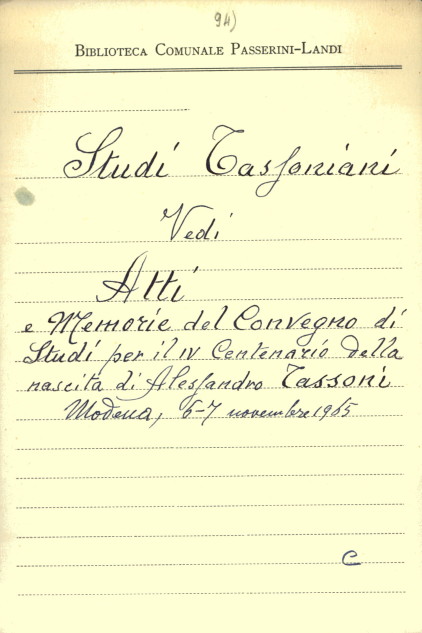 94)
BIBLIOTECA COMUNALE PASSERINI-LANDI
Studi Tassoniani
Vedi
Atti
e Memorie del Convegno di
Studi per il IV Centenario della
nascita di Alessandro Tassoni
Modena, 6-7 novembre 1965
C